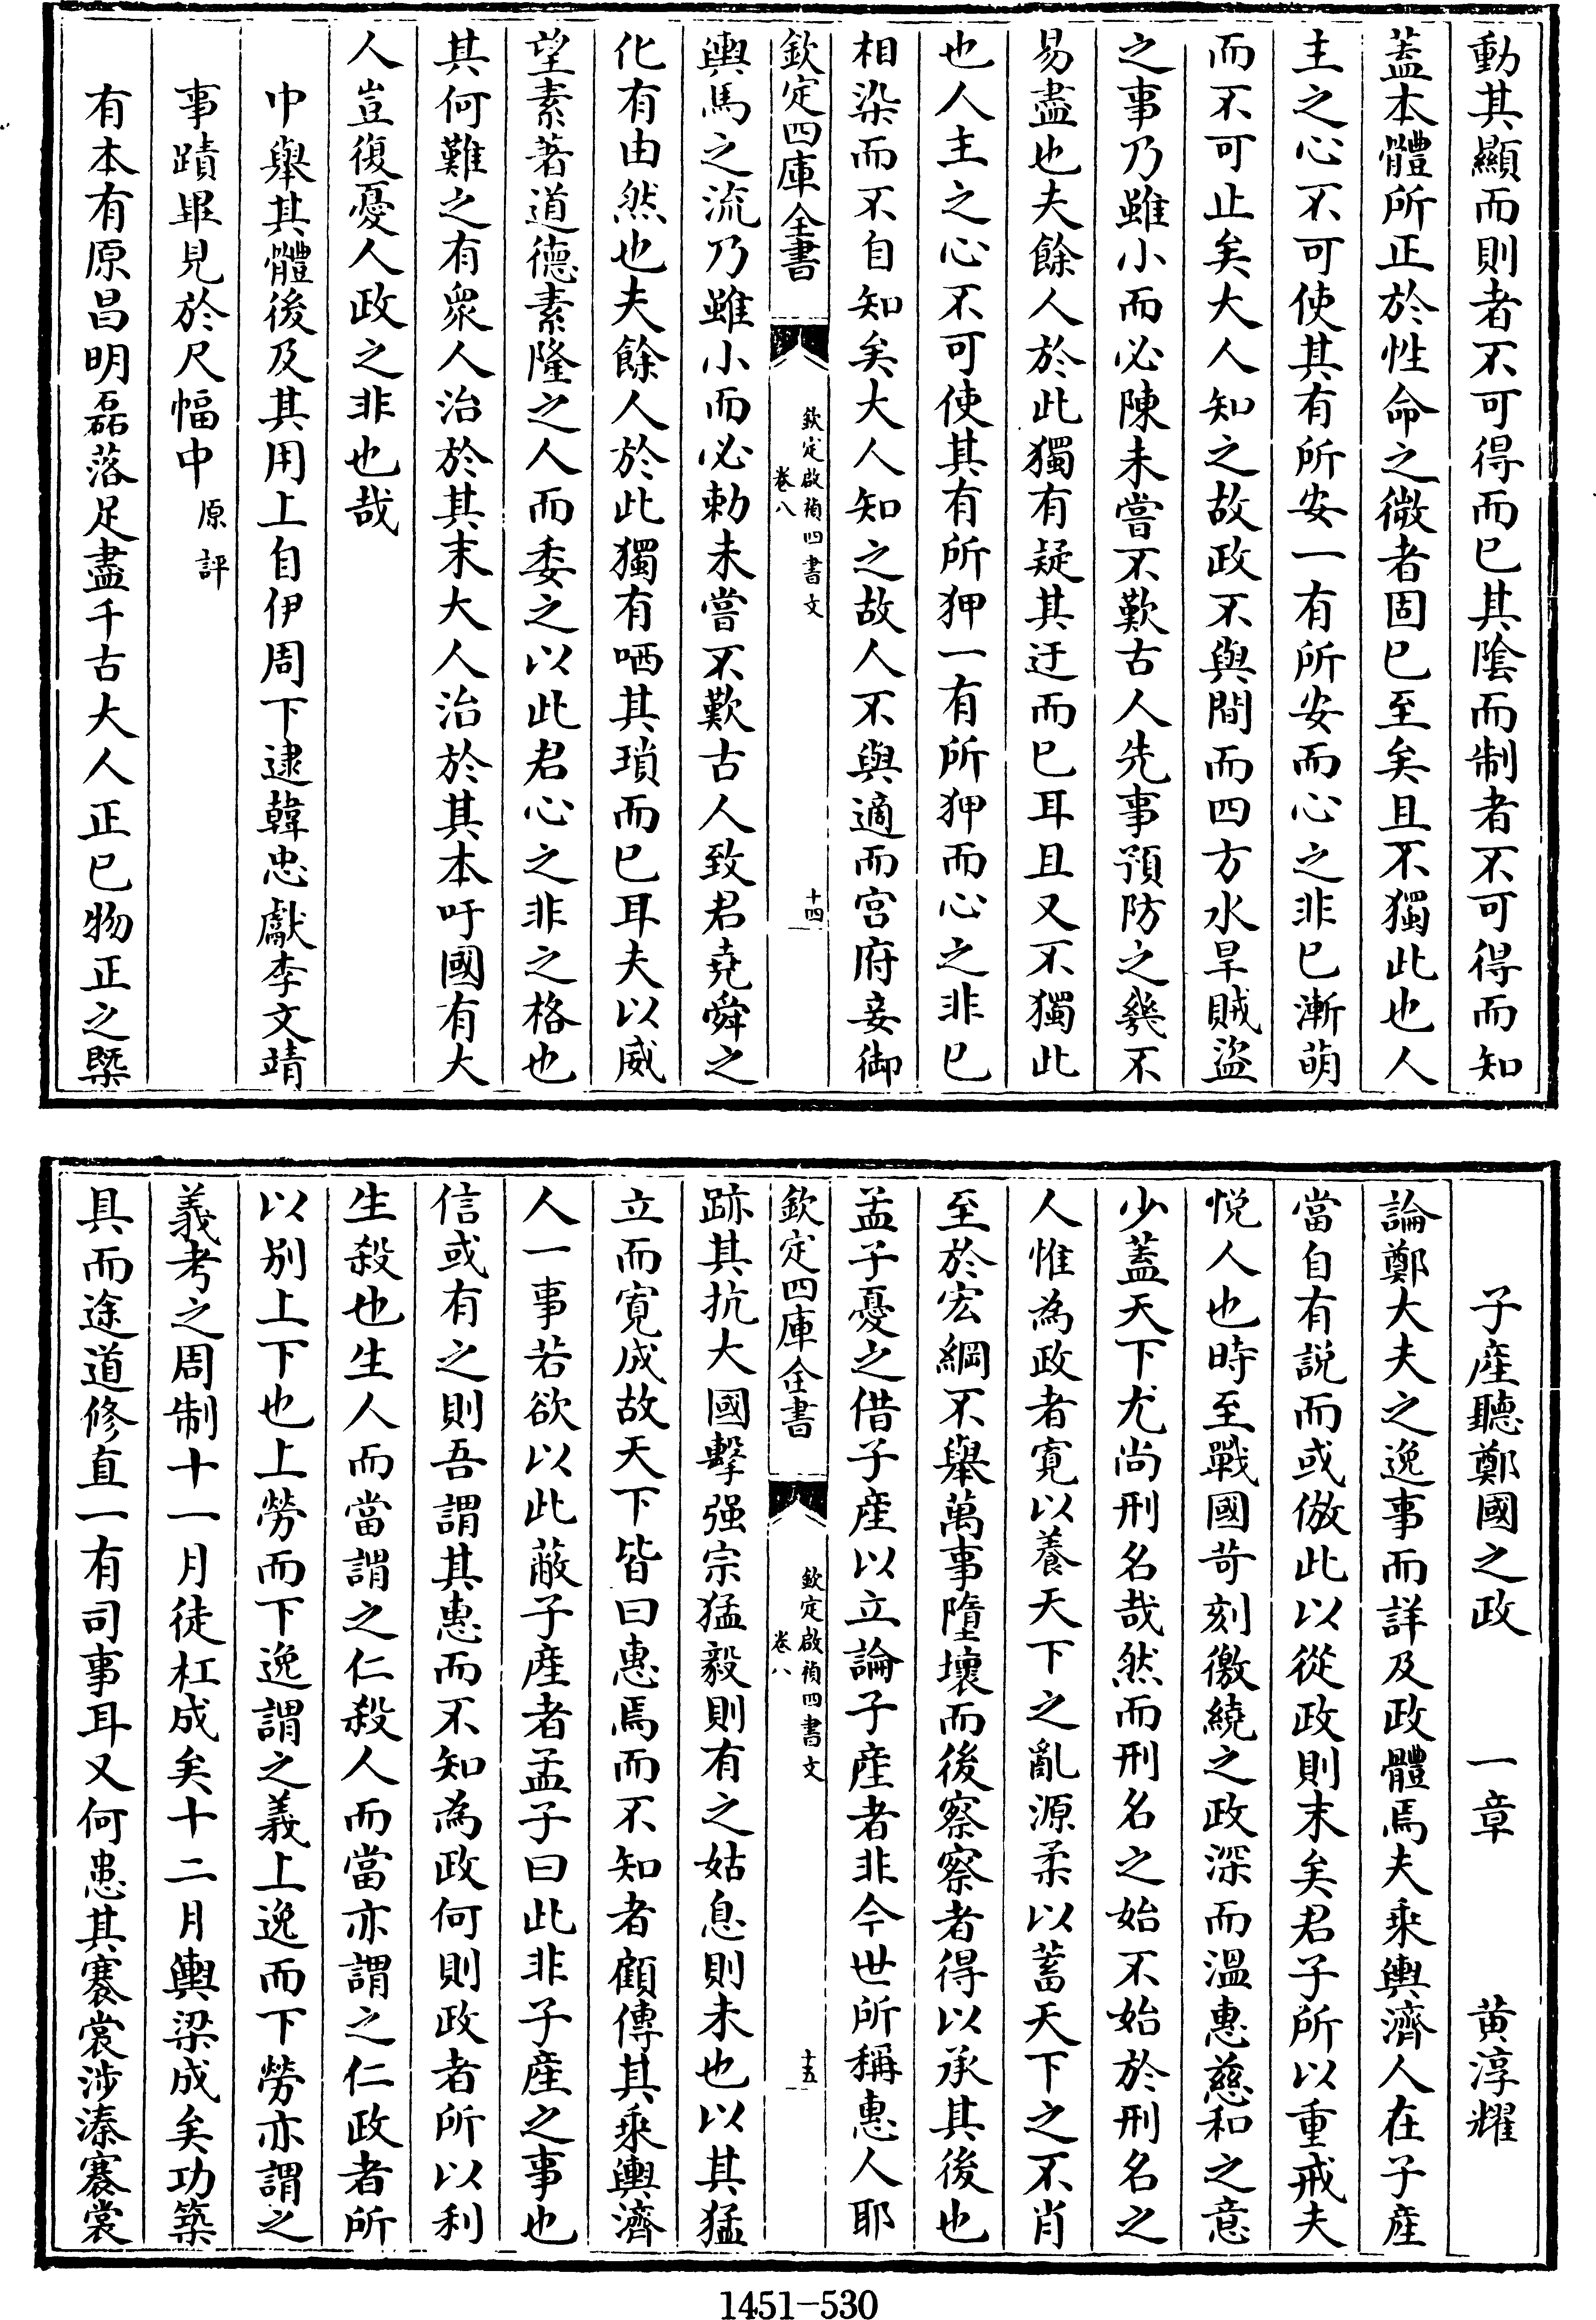 動其顯而則者不可得而已其隂而制者不可得而知
蓋本體所正於性命之微者固已至矣且不獨此也人
主之心不可使其有所安一有所安而心之非已漸萌
而不可止矣大人知之故政不與間而四方水旱賊盜
之事乃雖小而必陳未嘗不歎古人先事預防之幾不
易盡也夫餘人於此獨有疑其迂而已耳且又不獨此
也人主之心不可使其有所狎一有所狎而心之非已
相染而不自知矣大人知之故人不與適而宮府妾御
欽定四庫全書
欽定啟禎四書文
卷八
十四
輿馬之流乃雖小而必勅未嘗不歎古人致君堯舜之
化有由然也夫餘人於此獨有哂其瑣而已耳夫以威
望素著道德素隆之人而委之以此君心之非之格也
其何難之有衆人治於其末大人治於其本吁國有大
人豈復憂人政之非也哉
中舉其體後及其用上自伊周下逮韓忠獻李文靖
事蹟畢見於尺幅中原評
有本有原昌明磊落足盡千古大人正已物正之槩
子産聽鄭國之政 一章 黄淳耀
論鄭大夫之逸事而詳及政體焉夫乘輿濟人在子産
當自有説而或倣此以從政則末矣君子所以重戒夫
悦人也時至戰國苛刻徼繞之政深而溫惠慈和之意
少蓋天下尤尚刑名哉然而刑名之始不始於刑名之
人惟為政者寛以養天下之亂源柔以蓄天下之不肖
至於宏綱不舉萬事墮壞而後察察者得以承其後也
孟子憂之借子産以立論子産者非今世所稱惠人耶
欽定四庫全書
欽定啟禎四書文
卷八
十五
跡其抗大國擊强宗猛毅則有之姑息則未也以其猛
立而寛成故天下皆曰惠焉而不知者顧傳其乘輿濟
人一事若欲以此蔽子産者孟子曰此非子産之事也
信或有之則吾謂其惠而不知為政何則政者所以利
生殺也生人而當謂之仁殺人而當亦謂之仁政者所
以别上下也上勞而下逸謂之義上逸而下勞亦謂之
義考之周制十一月徒杠成矣十二月輿梁成矣功築
具而途道修直一有司事耳又何患其褰裳涉溱褰裳
1451-530